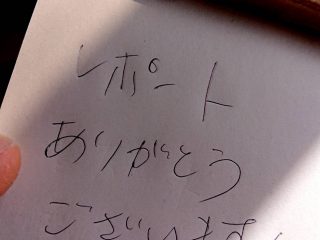 レポート
ありがとう
ございます。